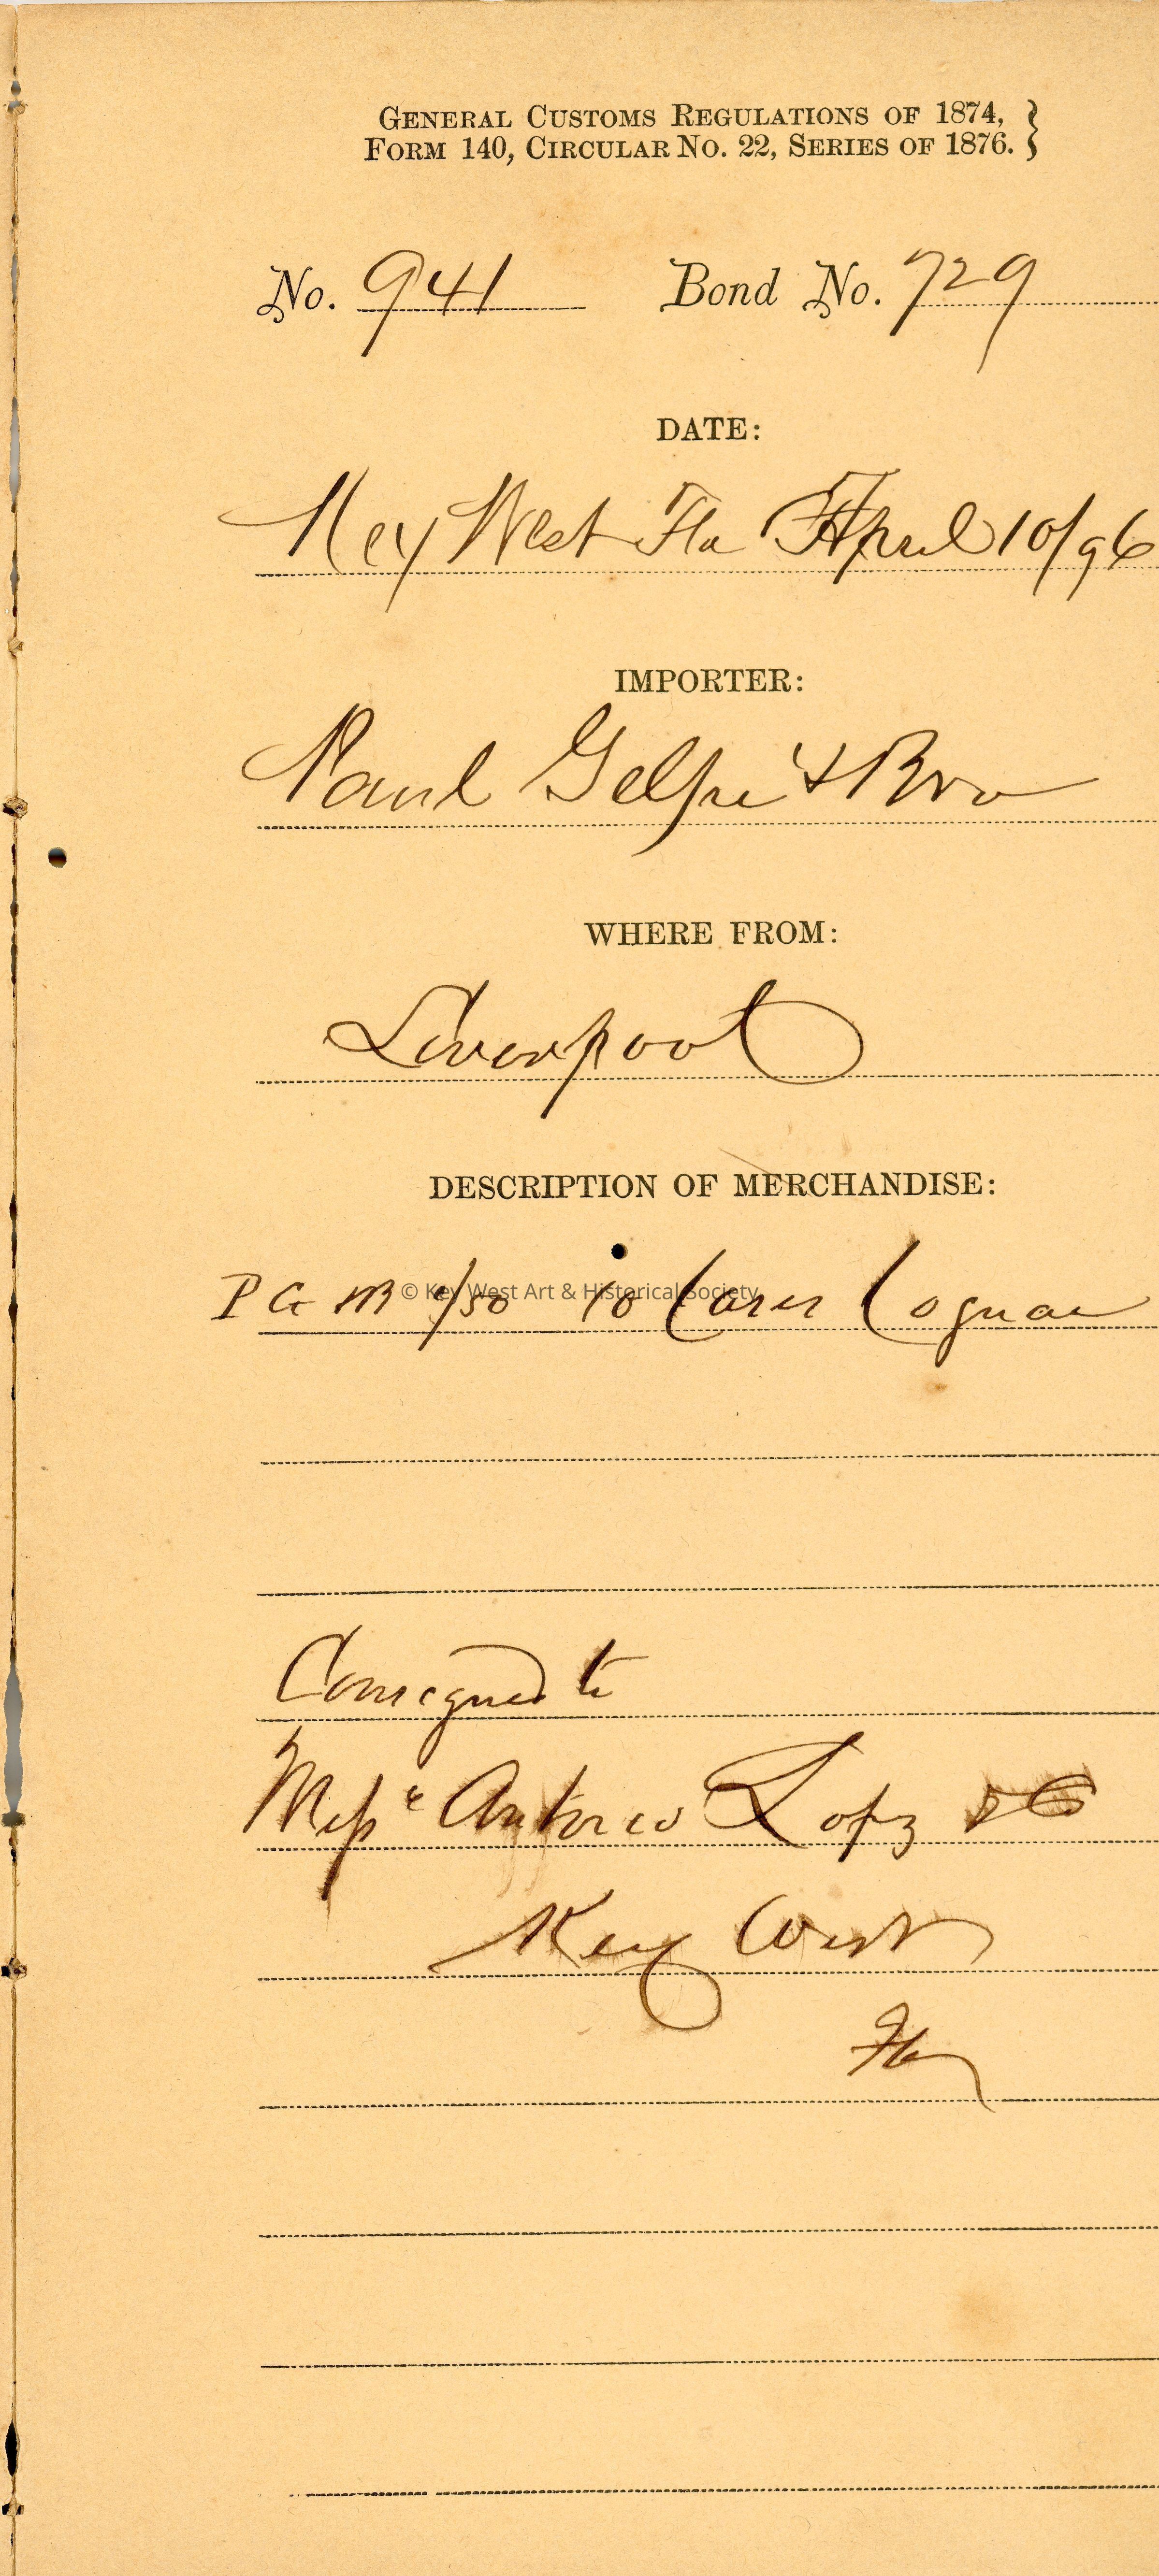 GENERAL CUSTOMS REGULATIONS OF 1874, }
FORM 140, CIRCULAR NO. 22, SERIES OF 1876. }
No. 941 Bond No. 729
DATE:
Key West Fla April 10/96
IMPORTER:
Paul Gelpi & Bro
WHERE FROM:
Liverpool
DESCRIPTION OF MERCHANDISE:
P G /50 10 Cases Cognac
© Key West Art & Historical Society
Consigned to
Messrs Antonio Lopez & Co
Key West
Fla